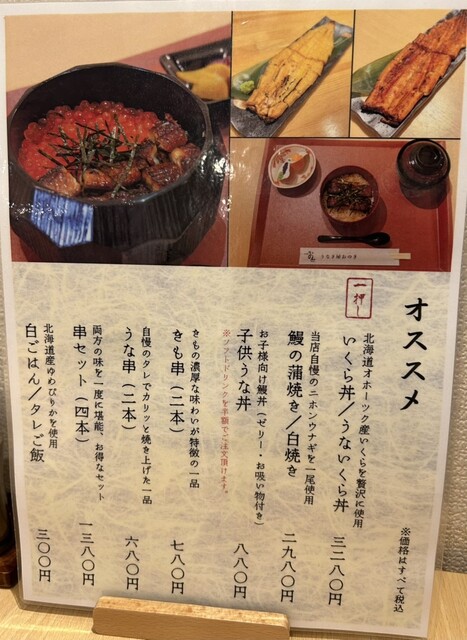 オススメ
※価格はすべて税込
一押し
北海道オホーツク産いくらを贅沢に使用
いくら丼/うないくら丼
三二八〇円
当店自慢のニホンウナギを一尾使用
鰻の蒲焼き/白焼き
二九八〇円
お子様向け鰻丼(ゼリー・お吸い物付き)
子供うな丼
※ソフトドリンクを半額でご注文頂けます。
八八〇円
きもの濃厚な味わいが特徴の一品
きも串(二本)
七八〇円
自慢のタレでカリッと焼き上げた一品
うな串(二本)
六八〇円
両方の味を一度に堪能、お得なセット
串セット(四本)
一三八〇円
北海道産ゆめぴりかを使用
白ごはん/タレご飯
三〇〇円